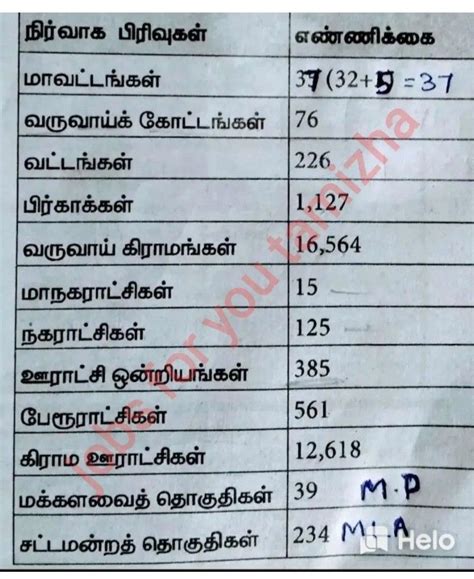 நிர்வாக பிரிவுகள் எண்ணிக்கை
மாவட்டங்கள் 37 (32+5 = 37
வருவாய்க் கோட்டங்கள் 76
வட்டங்கள் 226
பிர்காக்கள் 1,127
வருவாய் கிராமங்கள் 16,564
மாநகராட்சிகள் 15
நகராட்சிகள் 125
ஊராட்சி ஒன்றியங்கள் 385
பேரூராட்சிகள் 561
கிராம ஊராட்சிகள் 12,618
மக்களவைத் தொகுதிகள் 39 M.P
சட்டமன்றத் தொகுதிகள் 234 MLA
Jobs for you tamizha
Helo